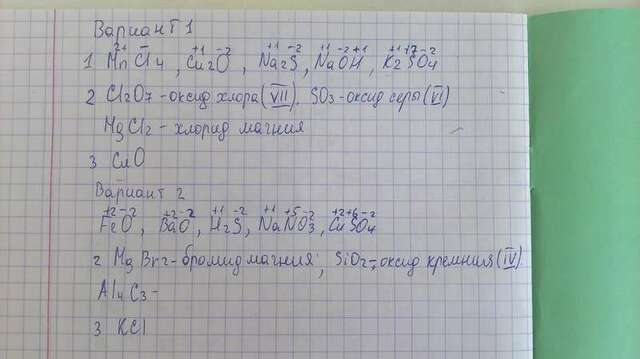 Вариант 1
1 Mn²⁺Cl⁻¹₄, Cu⁺¹₂O⁻², Na⁺¹₂S⁻², Na⁺¹O⁻²H⁺¹, K⁺¹₂S⁺⁷O⁻²₄
2 Cl₂O₇ - оксид хлора (VII). SO₃ - оксид серы (VI)
MgCl₂ - хлорид магния
3 CuO
Вариант 2
Fe⁺²O⁻², Ba⁺²O⁻², H⁺¹₂S⁻², Na⁺¹N⁺⁵O⁻²₃, Cu⁺²S⁺⁶O⁻²₄
2 MgBr₂ - бромид магния; SiO₂ - оксид кремния (IV)
Al₄C₃ -
3 KCl